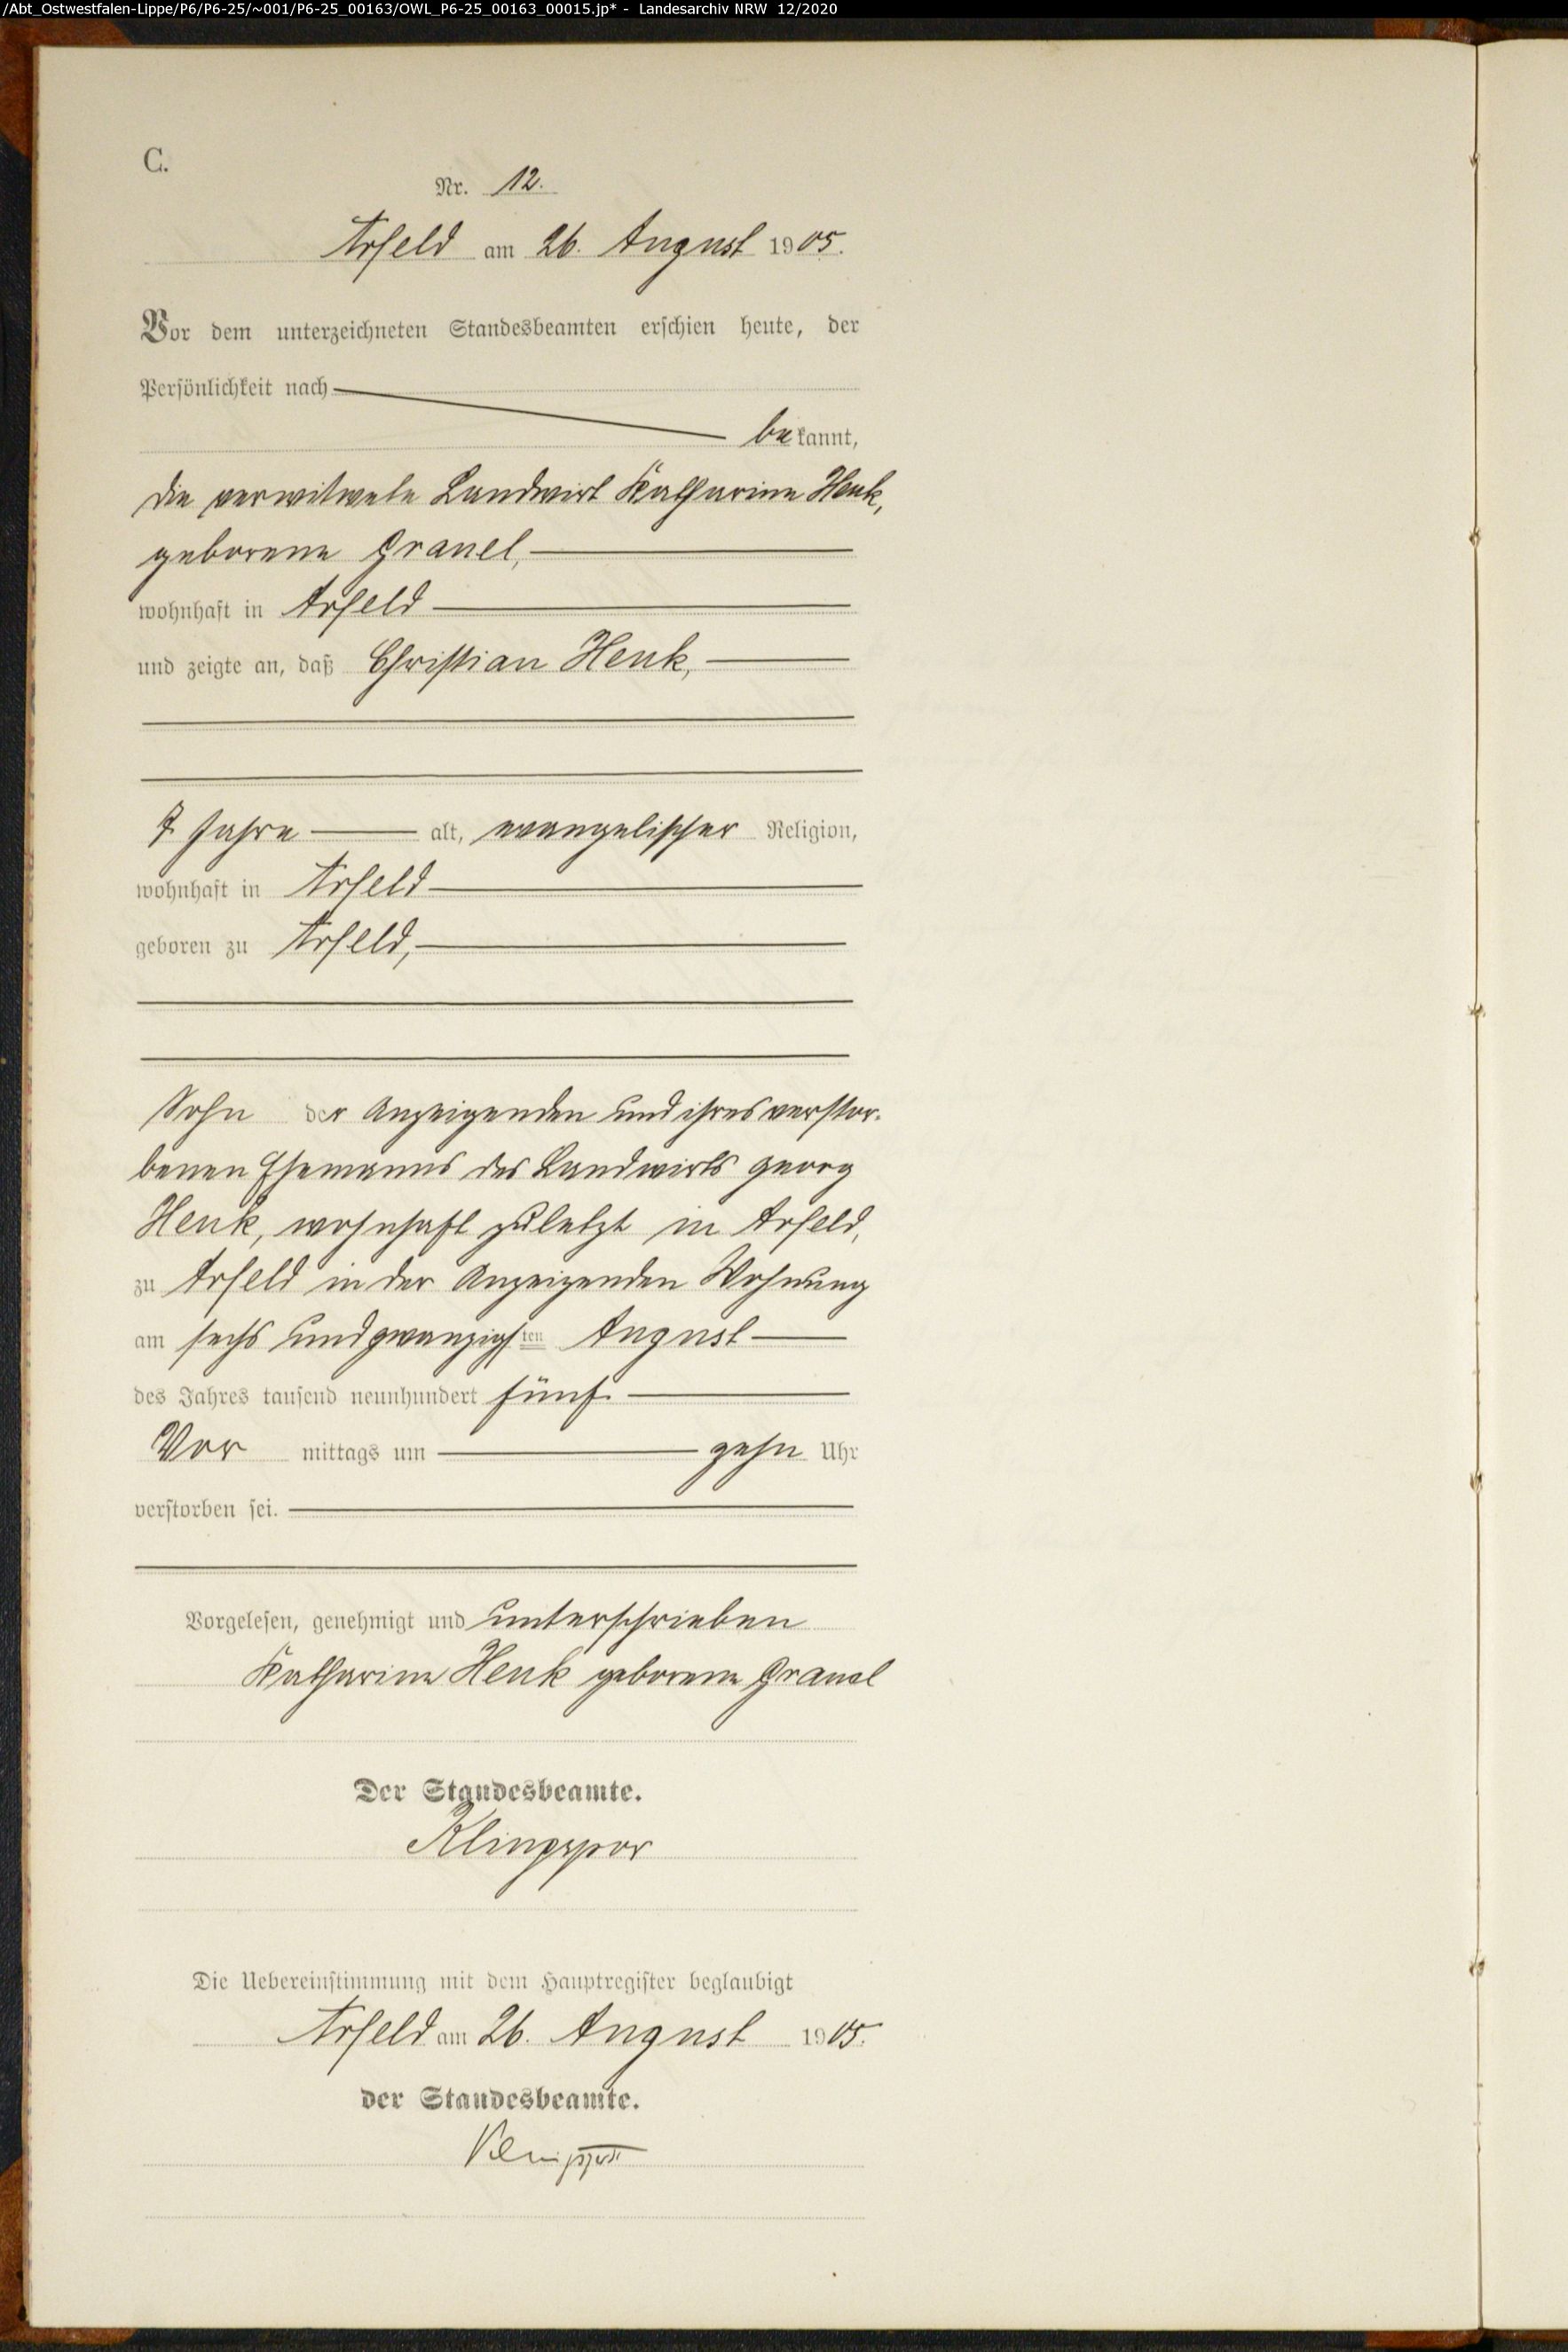 /Abt_Ostwestfalen-Lippe/P6/P6-25/~001/P6-25_00163/OWL_P6-25_00163_00015.jp* - Landesarchiv NRW 12/2020
C.
Nr. 12.
Arfeld am 26. August 1905.
Vor dem unterzeichneten Standesbeamten erschien heute, der
Persönlichkeit nach
bekannt,
die verwitwete Landwirt Katharina Henk,
geborene Granel,
wohnhaft in Arfeld
und zeigte an, daß Christian Henk,
7 Jahre alt, evangelischer Religion,
wohnhaft in Arfeld
geboren zu Arfeld,
Sohn der Anzeigenden und ihres verstor-
benen Ehemanns des Landwirts Georg
Henk, wohnhaft zuletzt in Arfeld,
zu Arfeld in der Anzeigenden Wohnung
am sechs und zwanzigsten August
des Jahres tausend neunhundert fünf
Vor mittags um zehn Uhr
verstorben sei.
Vorgelesen, genehmigt und unterschrieben
Katharina Henk geborene Granel
Der Standesbeamte.
Klingspor
Die Uebereinstimmung mit dem Hauptregister beglaubigt
Arfeld am 26. August 1905.
der Standesbeamte.
Klingspor